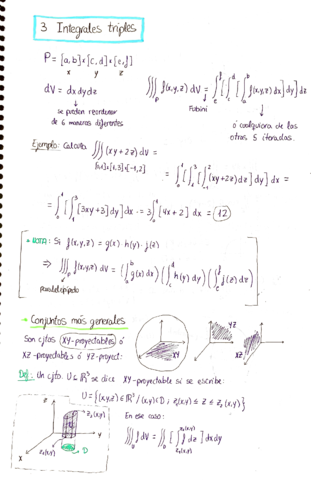 3 Integrales triples
P = [a,b]×[c,d]×[e,f]
x y z
dV = dxdydz
↓
se pueden reordenar
de 6 maneras diferentes
∭_P f(x,y,z) dV = ∫_e^f [∫_c^d [∫_a^b f(x,y,z) dx] dy] dz
↓ Fubini
↓ ó cualquiera de las
otras 5 iteradas.
Ejemplo: Calcula ∭ (xy+2z) dV =
[0,1]×[1,3]×[-1,2]
= ∫_0^1 [∫_1^3 [∫_{-1}^2 (xy+2z) dz] dy] dx =
= ∫_0^1 [∫_1^3 [3xy+3] dy] dx = 3∫_0^1 [4x+2] dx = 12
NOTA: Si f(x,y,z) = g(x)·h(y)·j(z)
⇒ ∭_P f(x,y,z) dV = (∫_a^b g(x) dx) (∫_c^d h(y) dy) (∫_e^f j(z) dz)
↓
paralelepípedo
→ Conjuntos más generales
Son cjtos XY-proyectables ó
XZ-proyectables ó YZ-proyect:
XY
YZ
XZ
Def: Un cjto. U ⊆ ℝ³ se dice XY-proyectable si se escribe:
U = {(x,y,z) ∈ ℝ³ / (x,y) ∈ D ; z₁(x,y) ≤ z ≤ z₂(x,y)}
z
z₂(x,y)
y
x
z₁(x,y)
D
En ese caso:
∭_U f dV = ∬_D [∫_{z₁(x,y)}^{z₂(x,y)} f dz] dxdy